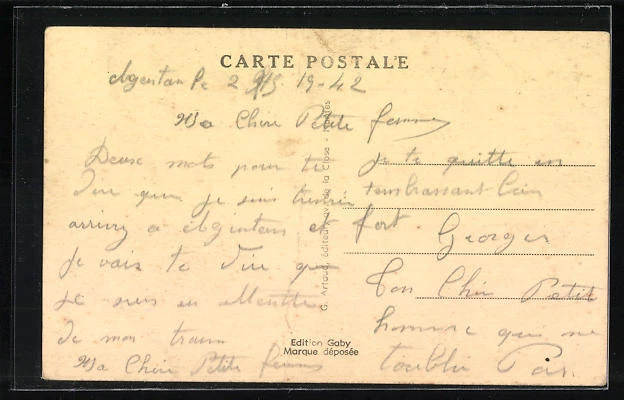 CARTE POSTALE
Argentan le 2 19-42
Ma Chère Petite femme
Deux mots pour te
dire que je suis
arrivez a Argentan et
je vais te dire que
je suis en
de mon
Ma Chère Petite femme
je te quitte en
tembrassant bien
fort. Georges
Ton Chér Petit
homme qui ne
toublie Pas.
G. Artaud, éditeur, de la Close - Nantes
Edition Gaby
Marque déposée